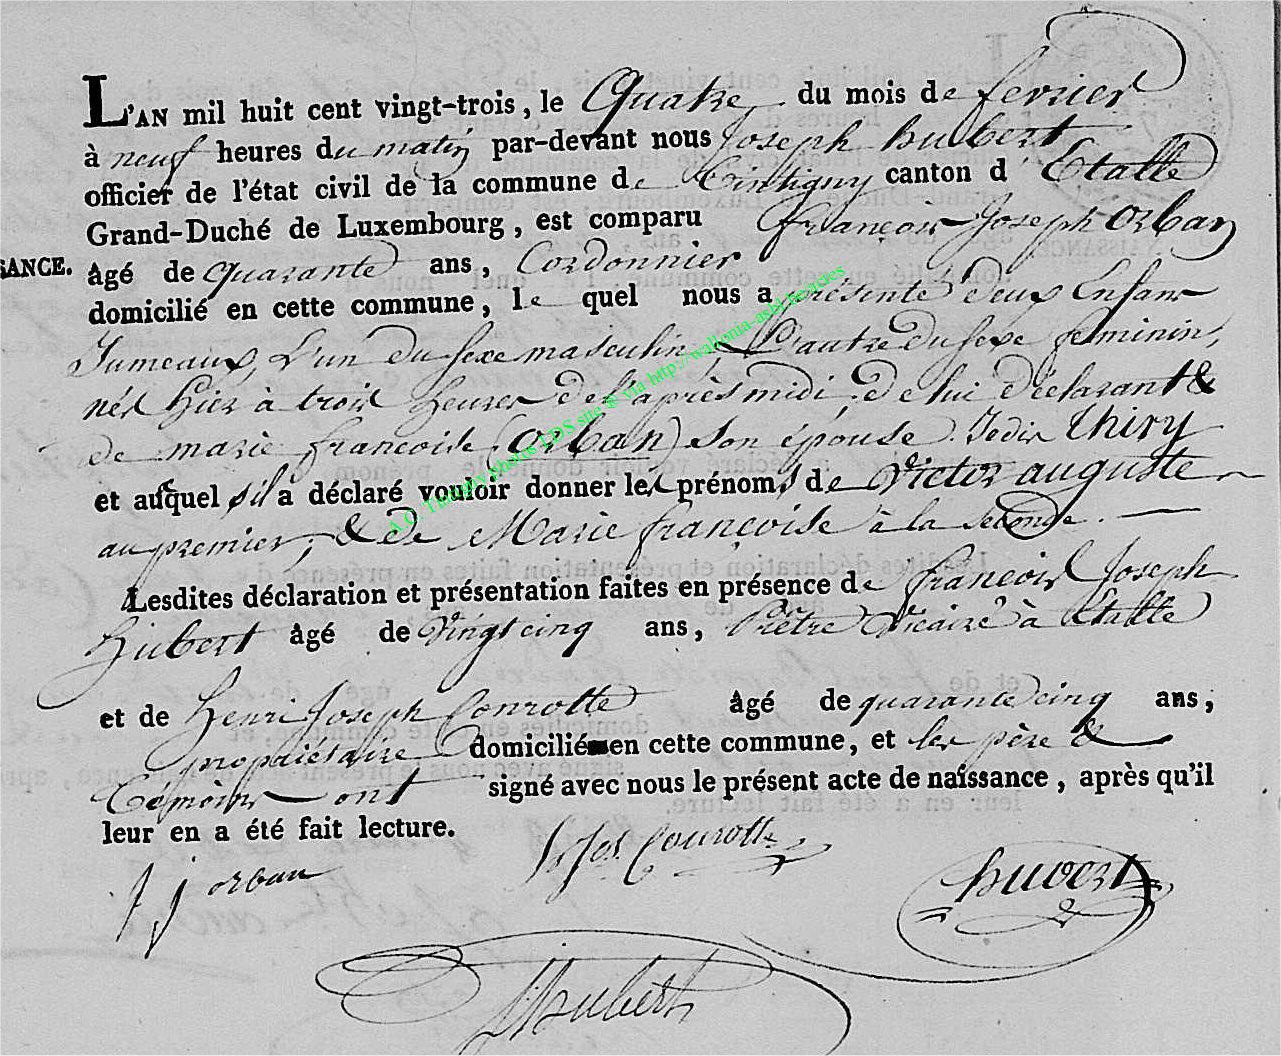 L'AN mil huit cent vingt-trois, le Quatre du mois de fevrier
à neuf heures du matin par-devant nous Joseph hubert
officier de l'état civil de la commune de Tintigny canton d'Etalle
Grand-Duché de Luxembourg, est comparu François Joseph Orban
SANCE. âgé de quarante ans, Cordonnier
domicilié en cette commune, lequel nous a présenté deux Enfans
Jumeaux, L'un du sexe masculin, & L'autre du sexe feminin,
nés hier à trois heures de l'après midi, de lui déclarant &
de marie françoise (Orban) son épouse. Je dis Thiry
et auxquels il a déclaré vouloir donner les prénoms de Victor auguste
au premier, & de Marie françoise à la seconde.
Lesdites déclaration et présentation faites en présence de françois Joseph
Hubert âgé de Vingt cinq ans, Prêtre Vicaire à Etalle
et de Henri Joseph Conrotte âgé de quarante cinq ans,
propriétaire domicilié en cette commune, et les père &
Témoins ont signé avec nous le présent acte de naissance, après qu'il
leur en a été fait lecture.
A.C. Tintigny photos LDS site & via http://wallonia-asbl.be/actes
fj orban
h Jos. Conrotte
hubert
Hubert